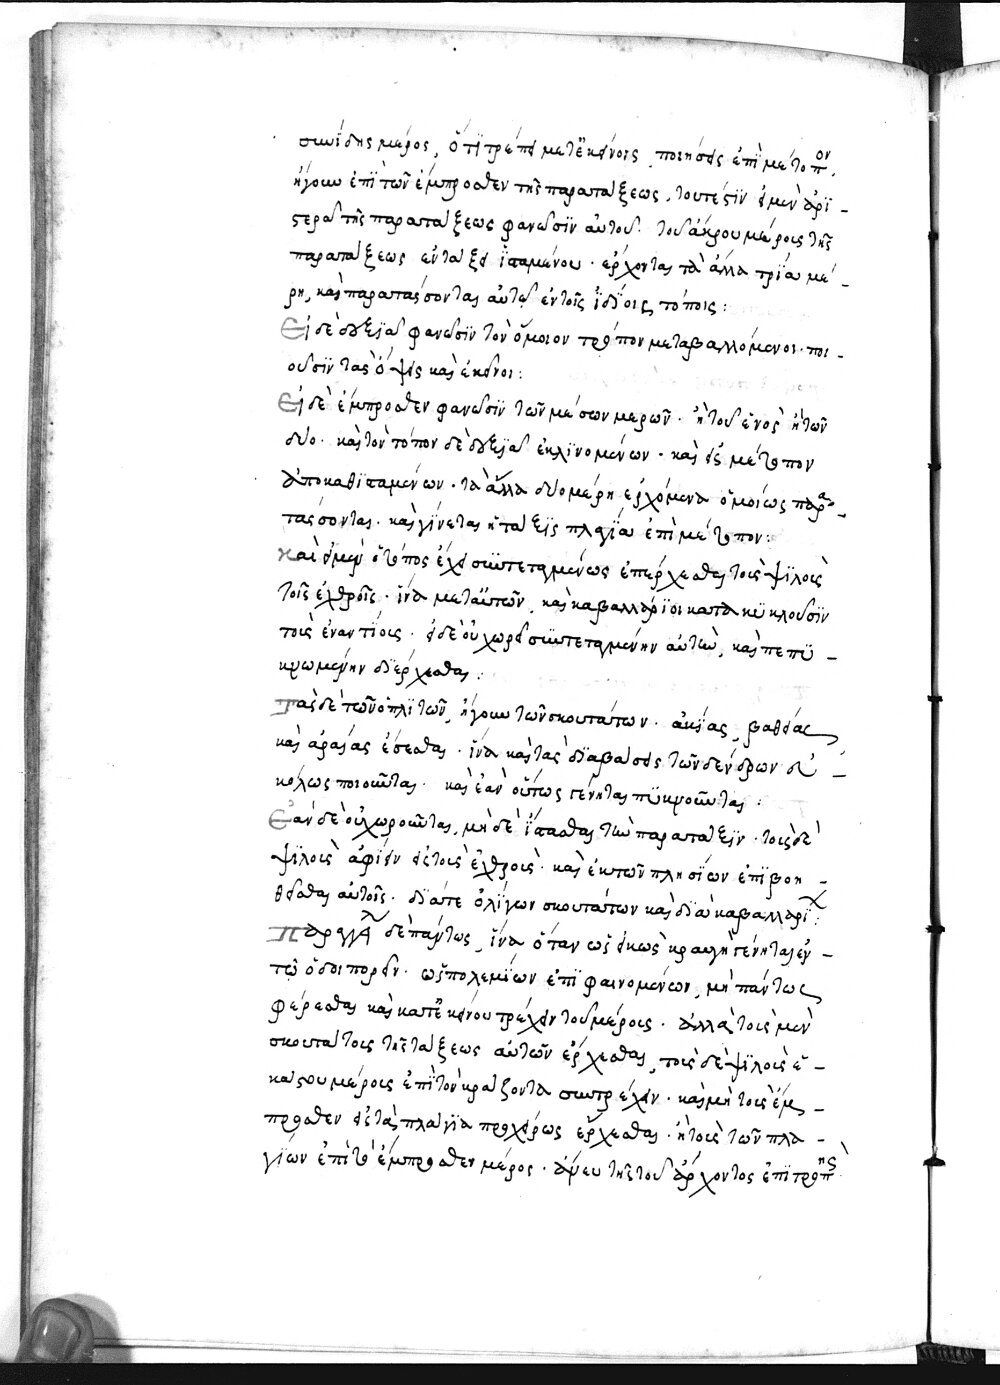 συνίδης μέρος, ὅτι τρέπει μετ' ἐκείνοις, ποιήσεις ἐπὶ μέτοπον,
ἤγουν ἐπὶ τῶν ἔμπροσθεν τῆς παρατάξεως, τουτέστιν εἰ μὲν ἀρι-
στερᾶ τῆς παρατάξεως φανῶσιν αὐτοῦ· τοῦ ἄκρου μέρους τῆς
παρατάξεως ἐν τάξει ἱσταμένου· ἔρχονται τὰ ἄλλα τρία μέ-
ρη, καὶ παρατάσσονται αὐτῶ ἐν τοῖς ἰδίοις τόποις:
Εἰ δὲ δεξιᾶ φανῶσιν τὸν ὅμοιον τρόπον μεταβαλλόμενοι· ποι-
οῦσιν τὰς ὄψεις καὶ ἐκεῖνοι:
Εἰ δὲ ἔμπροσθεν φανῶσιν τῶν μέσων μερῶν· ἢ τοῦ ἑνὸς ἢ τῶν
δύο· καὶ τὸν τόπον δὲ δεξιᾶ ἐκλινομένων· καὶ εἰς μέτωπον
ἀποκαθισταμένων· τὰ ἄλλα δύο μέρη ἐρχόμενα ὁμοίως παρα-
τάσσονται· καὶ γίνεται ἡ τάξις πλαγία ἐπὶ μέτωπον:
Καὶ εἰ μὲν ὁ τόπος ἔχει συντεταγμένως ἐπέρχεσθαι τοὺς ψιλοὺς
τοῖς ἐχθροῖς· ἵνα μετ' αὐτῶν, καὶ καβαλλάριοι κατακυκλοῦσιν
τοὺς ἐναντίους· εἰ δὲ οὐ χωρεῖ συντεταγμένην αὐτὴν, καὶ πεπυ-
κνωμένην διέρχεσθαι:
Τὰς δὲ τῶν ὁπλιτῶν, ἤγουν τῶν σκουτάτων· ἀκίας, βαθείας
καὶ ἀραιὰς ἔσεσθαι· ἵνα καὶ τὰς διαβάσεις τῶν δένδρων εὐ-
κόλως ποιοῦνται· καὶ ἐὰν οὕτως γένηται πυκνοῦνται:
Ἐὰν δὲ οὐ χωροῦνται, μὴ δὲ ἵστασθαι τὴν παράταξιν· τοὺς δὲ
ψιλοὺς ἀφιεῖν εἰς τοὺς ἐχθρούς· καὶ ἐκ τῶν πλησίων ἐπιβοη-
θεῖσθαι αὐτοῖς· διά τε ὀλίγων σκουτάτων καὶ διὰ καβαλλαρίων:
Παραγγέλλειν δὲ πάντως, ἵνα ὅταν ὡς εἰκὼς κραυγὴ γένηται ἐν
τῶ ὁδοιπορεῖν· ὡς πολεμίων ἐπιφαινομένων, μὴ πάντως
φέρεσθαι καὶ κατ' ἐκείνου τρέχειν τοῦ μέρους· ἀλλὰ τοὺς μὲν
σκουτάτους τῆς τάξεως αὐτῶν ἔρχεσθαι, τοὺς δὲ ψιλοὺς ἑ-
κάστου μέρους ἐπὶ τὸν κράζοντα συντρέχειν· καὶ μὴ τοὺς ἔμ-
προσθεν εἰς τὰ πλάγια προχείρως ἔρχεσθαι· ἢ τοὺς τῶν πλα-
γίων ἐπὶ τὸ ἔμπροσθεν μέρος· ἄνευ τῆς τοῦ ἄρχοντος ἐπιτροπῆς